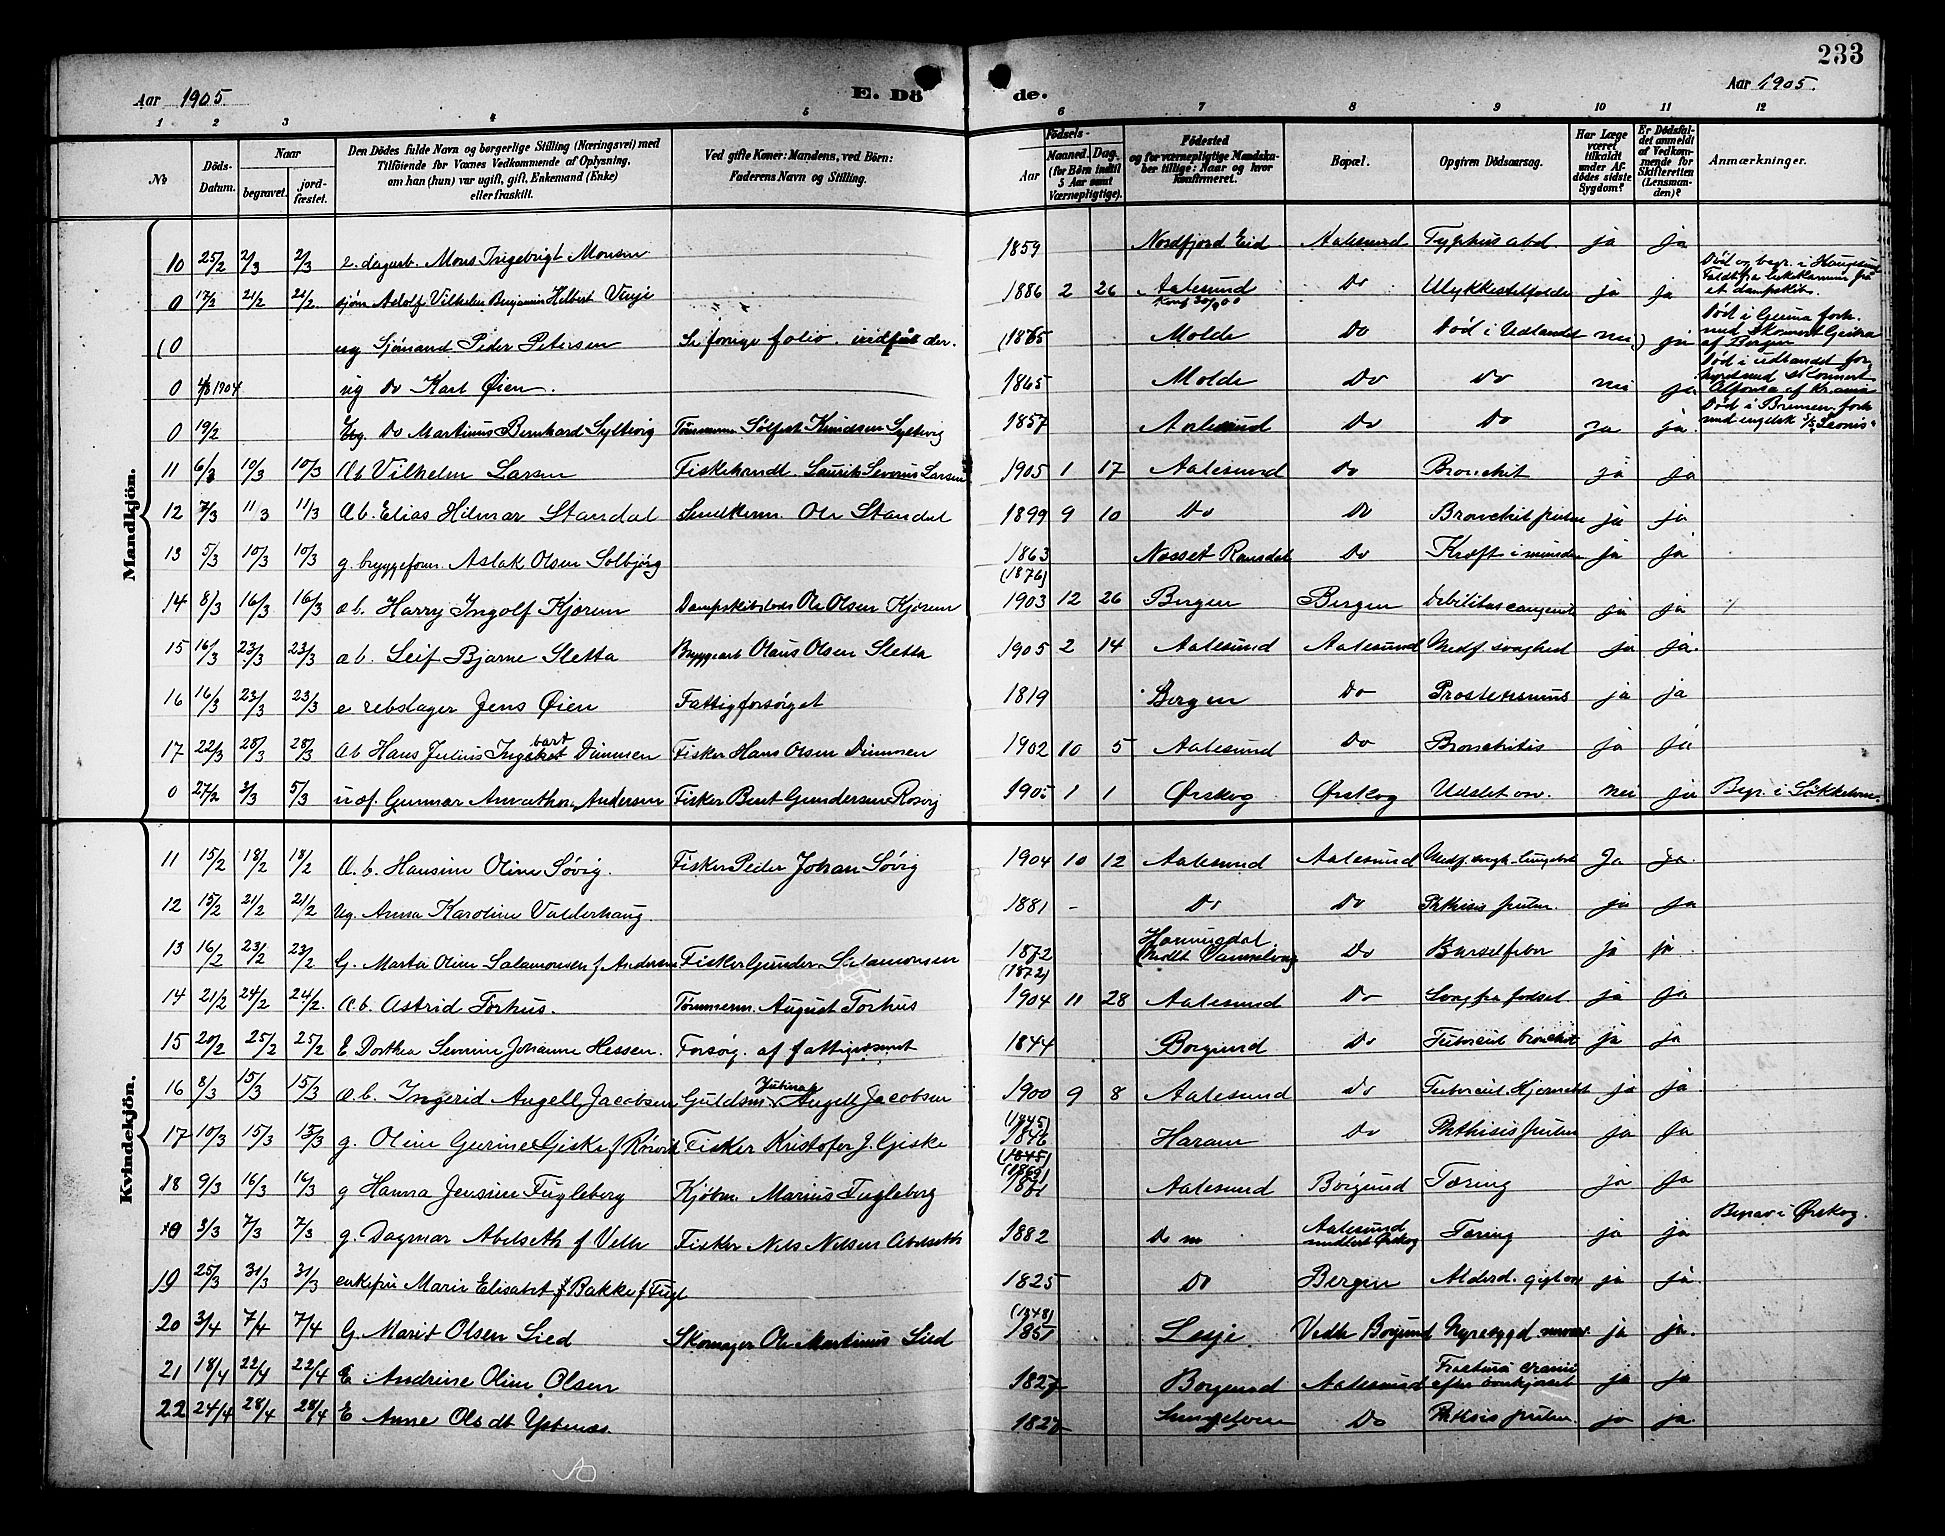 233
Aar 1905.
E. Dö
de.
Aar 1905.
1 2 3 4 5 6 7 8 9 10 11 12
No
Döds-Datum.
Naar
begravet.
jord-fæstet.
Den Dödes fulde Navn og borgerlige Stilling (Næringsvei) med
Tilföiende for Voxnes Vedkommende af Oplysning,
om han (hun) var ugift, gift, Enkemand (Enke)
eller fraskilt.
Ved gifte Koner: Mandens, ved Börn:
Faderens Navn og Stilling.
Födsels-
Aar
Maaned. Dag.
(for Börn indtil
5 Aar samt
Værnepligtige).
Födested
og for værnepligtige Mandska-
ber tillige: Naar og hvor
konfirmeret.
Bopæl.
Opgiven Dödsaarsag.
Har Læge
været
tilkaldt
under Af-
dödes sidste
Sygdom?
Er Dödsfal-
det anmeldt
af Vedkom-
mende for
Skifteretten
(Lensman-
den)?
Anmærkninger.
Mandkjön.
10 25/2 2/3 2/3 dagarb. Mons Ingebrigt Monsen 1859 Nordfjord Eid Aalesund Typhus abd. ja ja
0 17/2 21/2 21/2 sjøm Adolf Vilhelm Benjamin Helbert 1886 2 26 Aalesund Do Ulykkestilfælde ja ja Død og begr. i Haugesund
Konf 30/9 00
et dampskib.
(0 ug Sjømand Peder Petersen Se forrige folio. indført der. (1865 Molde Do Død i Udlandet nei) ja
af Bergen
0 4/8 1904 ug Do Karl Øien. 1865 Molde Do Do nei ja Død i udlandet
0 19/2 Ug. Do Martinus Bernhard Syltevig Tømmerm Sølfest Knudsen Syltevig 1857 Aalesund Do Do ja ja. Død i Bremen
11 6/3 10/3 10/3 Æb Vilhelm Larsen Fiskehandl. Laurits Severus Larsen 1905 1 17 Aalesund Do Bronchit ja ja
12 7/3 11/3 11/3 Æb. Elias Hilmar Standal Snedkerm. Ole Standal 1899 9 10 Do Do Bronchit ja ja
13 5/3 10/3 10/3 g. bryggeform. Aslak Olsen Solbjørg 1863 Nesset Romsdal Do Kræft i munden ja ja
(1876)
14 8/3 16/3 16/3 æb. Harry Ingolf Kjørem Dampskibslods Ole Olsen Kjørem 1903 12 26 Bergen Bergen Debilitas congenita ja ja
15 16/3 23/3 23/3 æb. Leif Bjarne Sletta Bryggearb Olaus Olsen Sletta 1905 2 14 Aalesund Aalesund Medf. svaghed ja ja.
16 16/3 23/3 23/3 e rebslager Jens Øien Fattigforsørget 1819 Bergen Do ja ja
17 22/3 28/3 28/3 Æb Hans Julius Dimmen Fisker Hans Olsen Dimmen 1902 10 5 Aalesund Do Bronchitis ja ja
0 27/2 3/3 5/3 Gunnar Andersen Fisker Bernt Gundersen 1905 1 1 Ørskog Ørskog nei ja
Kvindekjön.
11 15/2 18/2 18/2 Æ.b. Hansine Oline Søvig. Fisker Peder Johan Søvig 1904 10 12 Aalesund Aalesund Ja Ja.
12 15/2 21/2 21/2 Ug. Anna Karoline Valderhaug. 1881 - Do Do Phthisis pulm. ja ja
13 16/2 23/2 23/2 G. Marta Oline Salamonsen f Andersen Fisker Gunder Salamonsen 1872 Do Barselfeber ja ja
(1872)
14 21/2 24/2 24/2. Æ.b. Astrid Torhus. Tømmerm. August Torhus 1904 11 28 Aalesund Do Svag fra fødsel. ja ja
15 20/2 25/2 25/2 E Dorthea Severine Johanne Hessen. Forsørg. af fattigvæsenet 1844 Borgund Do Tubercul bronchit ja ja
16 8/3 15/3 15/3 Æb. Ingerid Angell Jacobsen Guldsm Angell Jacobsen 1900 9 8 Aalesund Do ja ja
17 10/3 15/3 15/3 g. Oline Gurine Giske f Røsvik Fisker Kristofer J. Giske (1845) 1846 Haram Do Phthisis pulm ja ja
(1845)
18 9/3 16/3 16/3 g Hanna Jensine Fugleberg Kjøbm. Marius Fugleberg (1869) Aalesund Borgund Tæring ja ja
0 3/3 7/3 7/3 g. Dagmar Abelseth f Velle Fisker Nils Nilsen Abelseth 1882 Do Aalesund Tæring ja ja Begrav i Ørskog.
19 25/3 31/3 31/3 enkefru Marie Elisabet Bakke f Fugl 1825 Do Bergen ja ja
20 3/4 7/4 7/4 G. Marit Olsen Lied Skomager Ole Martinus Lied (1848) 1851 Lesje Vedle Borgund ja ja.
21 18/4 22/4 22/4 E. Andrine Oline Olsen 1827 Borgund Aalesund Fractura cranii ja ja
22 24/4 28/4 28/4 E Anne Olsdt Ystenes 1827 Sunnelven Do Phthisis pulm. ja ja